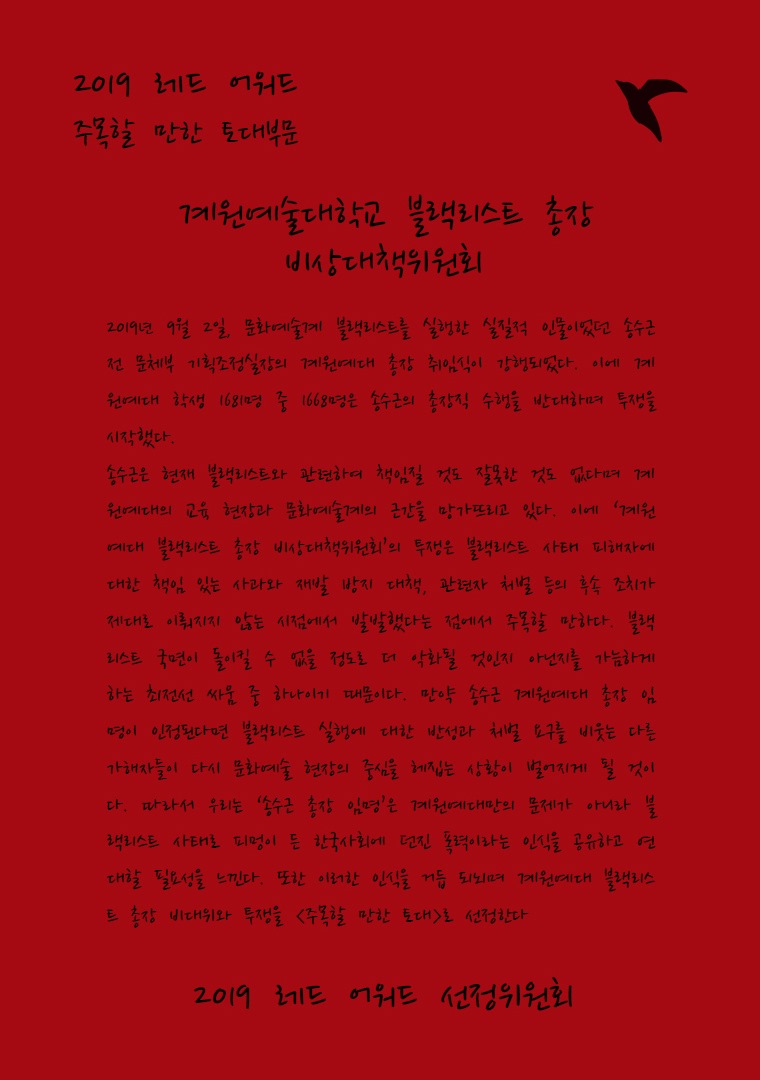 2019 레드 어워드
주목할 만한 토대부문
계원예술대학교 블랙리스트 총장
비상대책위원회
2019년 9월 2일, 문화예술계 블랙리스트를 실행한 실질적 인물이었던 송수근
전 문체부 기획조정실장의 계원예대 총장 취임식이 강행되었다. 이에 계
원예대 학생 1681명 중 1668명은 송수근의 총장직 수행을 반대하며 투쟁을
시작했다.
송수근은 현재 블랙리스트와 관련하여 책임질 것도 잘못한 것도 없다며 계
원예대의 교육 현장과 문화예술계의 근간을 망가뜨리고 있다. 이에 ‘계원
예대 블랙리스트 총장 비상대책위원회’의 투쟁은 블랙리스트 사태 피해자에
대한 책임 있는 사과와 재발 방지 대책, 관련자 처벌 등의 후속 조치가
제대로 이뤄지지 않는 시점에서 발발했다는 점에서 주목할 만하다. 블랙
리스트 국면이 돌이킬 수 없을 정도로 더 악화될 것인지 아닌지를 가늠하게
하는 최전선 싸움 중 하나이기 때문이다. 만약 송수근 계원예대 총장 임
명이 인정된다면 블랙리스트 실행에 대한 반성과 처벌 요구를 비웃는 다른
가해자들이 다시 문화예술 현장의 중심을 헤집는 상황이 벌어지게 될 것이
다. 따라서 우리는 ‘송수근 총장 임명’은 계원예대만의 문제가 아니라 블
랙리스트 사태로 피멍이 든 한국사회에 던진 폭력이라는 인식을 공유하고 연
대할 필요성을 느낀다. 또한 이러한 인식을 거듭 되뇌며 계원예대 블랙리스
트 총장 비대위와 투쟁을 <주목할 만한 토대>로 선정한다
2019 레드 어워드 선정위원회